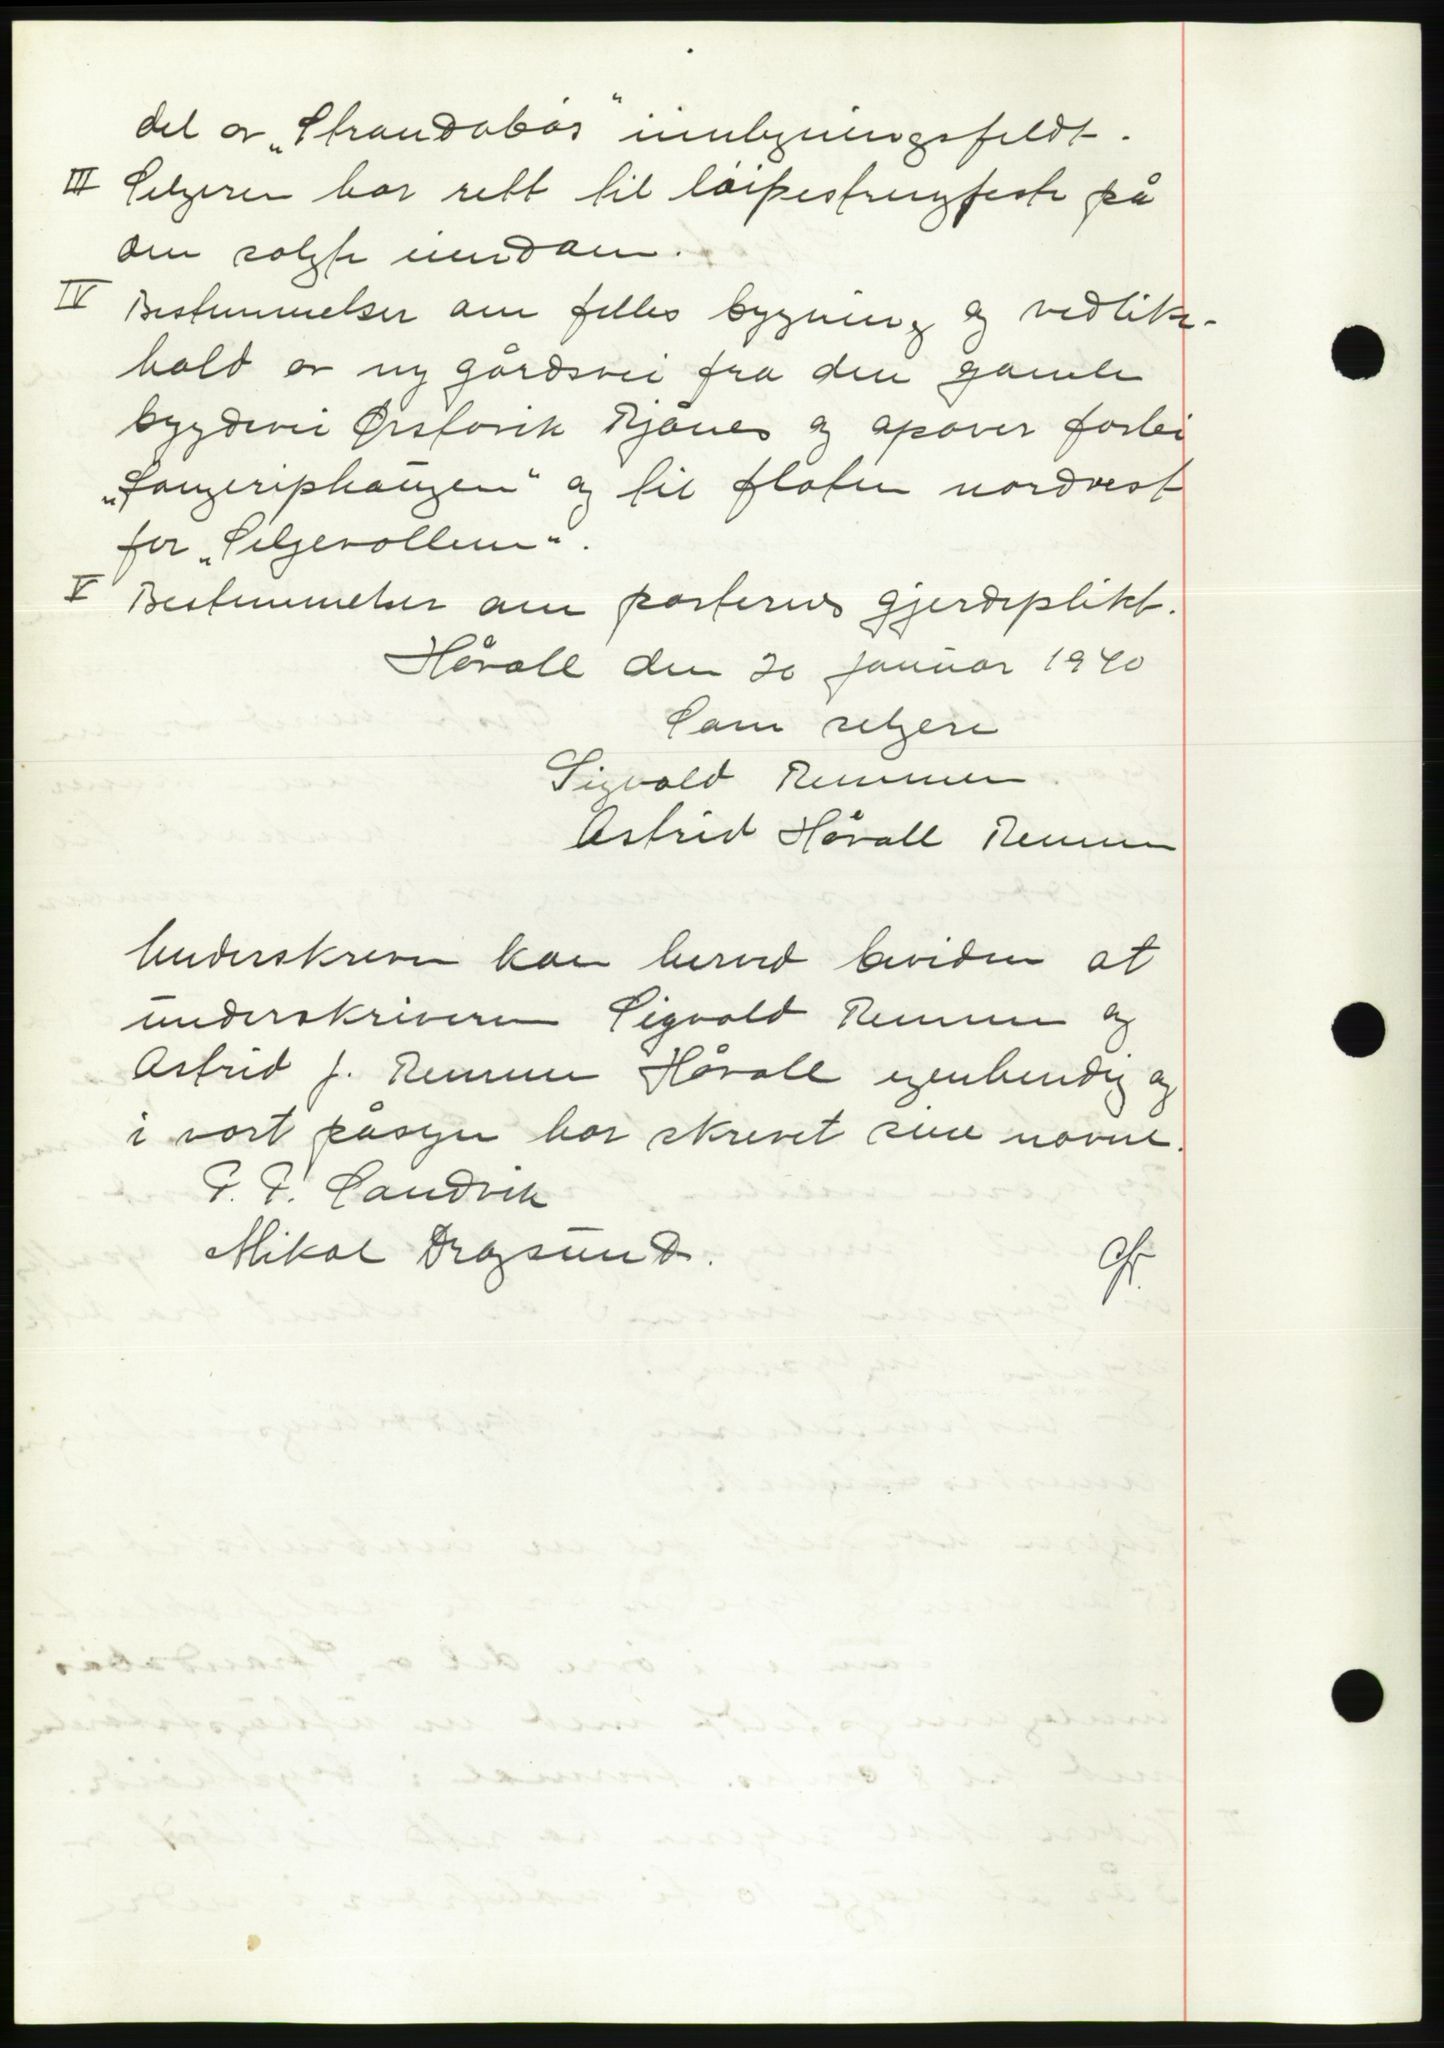 del av „Strandabås" innlegningsfeldt.
III Selgeren har rett til løipestrengfeste på
den solgte eiendom.
IV Bestemmelser om felles bygning og vedlike-
hold av ny gårdsvei fra den gamle
bygdevei Ørstavik Mjånes og opover forbi
og til floten nordvest
for „Seljevollene".
V Bestemmelser om partenes gjerdeplikt.
Håvoll den 20 januar 1940
Som selgere
Sigvald Remmen.
Astrid Håvoll Remmen
Underskreven kan herved bevidne at
underskriveren Sigvald Remmen og
Astrid J. Remmen Håvoll egenhendig og
i vort påsyn har skrevet sine navne.
P. P. Sandvik
Mikal Dragsund.